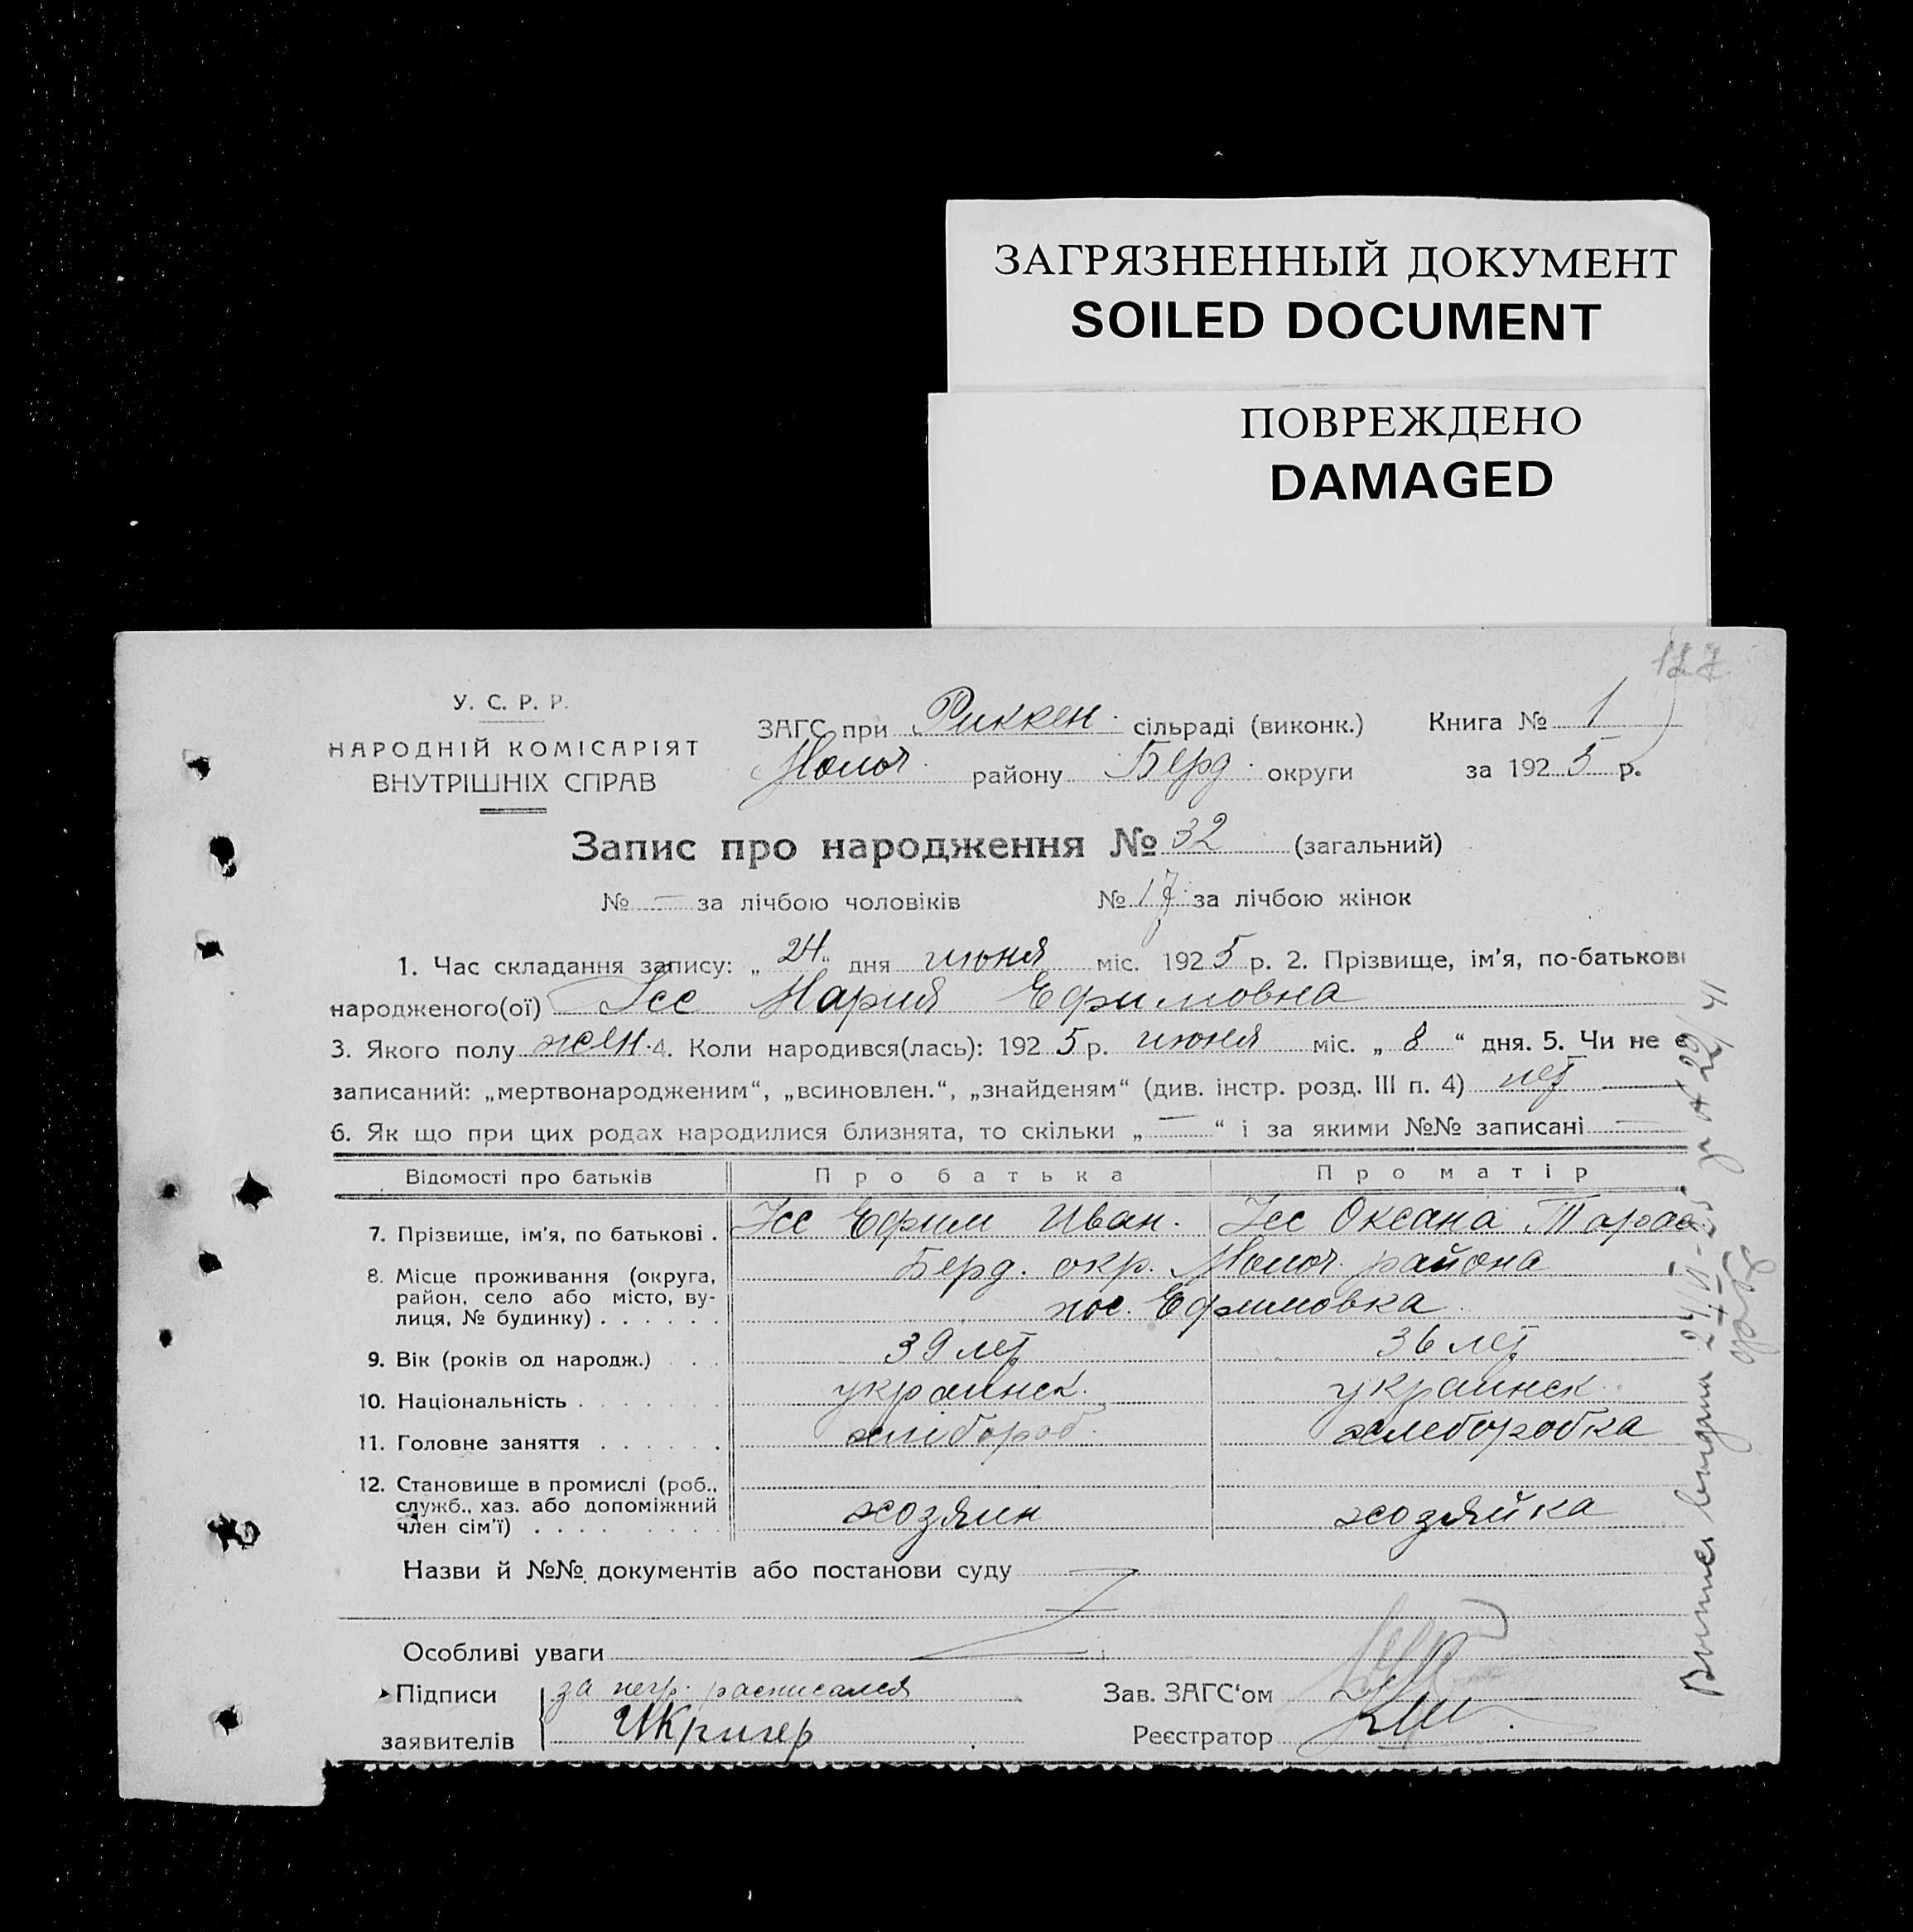 ЗАГРЯЗНЕННЫЙ ДОКУМЕНТ
SOILED DOCUMENT
ПОВРЕЖДЕНО
DAMAGED
127
У. С. Р. Р.
НАРОДНІЙ КОМІСАРІЯТ
ВНУТРІШНІХ СПРАВ
ЗАГС при Риккен. сільраді (виконк.) Книга № 1
Молоч. району Берд. округи за 1925 р.
Запис про народження № 32 (загальний)
№ — за лічбою чоловіків № 17 за лічбою жінок
1. Час складання запису: „24“ дня июня міс. 1925 р. 2. Прізвище, ім'я, по-батькові
народженого(ої) Ісс Мария Ефимовна
3. Якого полу жен. 4. Коли народився(лась): 1925 р. июня міс. „8“ дня. 5. Чи не є
записаний: „мертвонародженим“, „всиновлен.“, „знайденям“ (див. інстр. розд. III п. 4) нет
6. Як що при цих родах народилися близнята, то скільки „—“ і за якими №№ записані —
Відомості про батьків Про батька Про матір
7. Прізвище, ім'я, по батькові . Ісс Ефим Иван. Ісс Оксана Тарас.
8. Місце проживання (округа, Берд. окр. Молоч. района
район, село або місто, ву-
лиця, № будинку) . . . . . . пос. Ефимовка
9. Вік (років од народж.) . . . 39 лет 36 лет
10. Національність . . . . . . . украинск. украинск.
11. Головне заняття . . . . . . хлібороб. хлеборобка
12. Становище в промислі (роб.,
служб., хаз. або допоміжний
член сім'ї) . . . . . . . . . хозяин хозяйка
Назви й №№ документів або постанови суду
Особливі уваги
Підписи за негр. расписался Зав. ЗАГС'ом
заявителів ИКригер Реєстратор
выдана за № 29/41